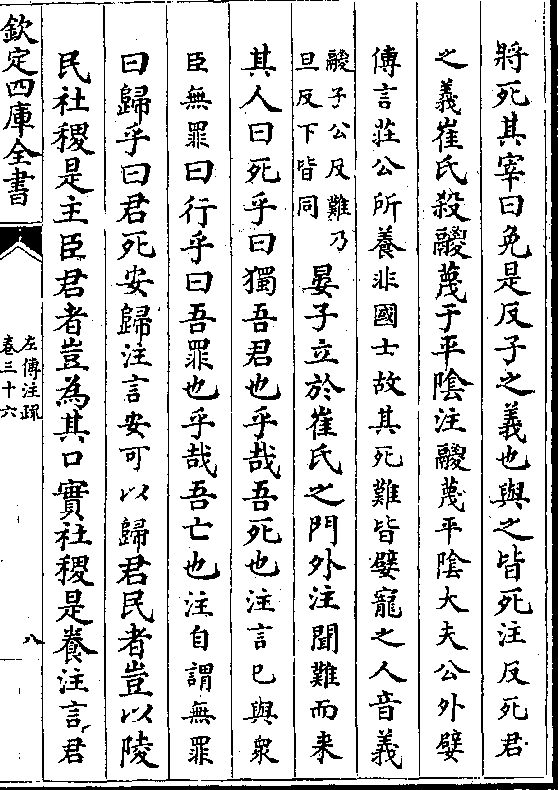 將死其宰曰免是反子之義也與之皆死注反死君
之義崔氏殺鬷蔑于平陰注鬷蔑平陰大夫公外嬖
傳言莊公所養非國士故其死難皆嬖寵之人音義
鬷子公反難乃
旦反下皆同
晏子立於崔氏之門外注聞難而来
其人曰死乎曰獨吾君也乎哉吾死也注言己與衆
臣無罪曰行乎曰吾罪也乎哉吾亡也注自謂無罪
曰歸乎曰君死安歸注言安可以歸君民者豈以陵
民社稷是主臣君者豈為其口實社稷是養注言君
欽定四庫全書
左傳注疏
卷三十六
八